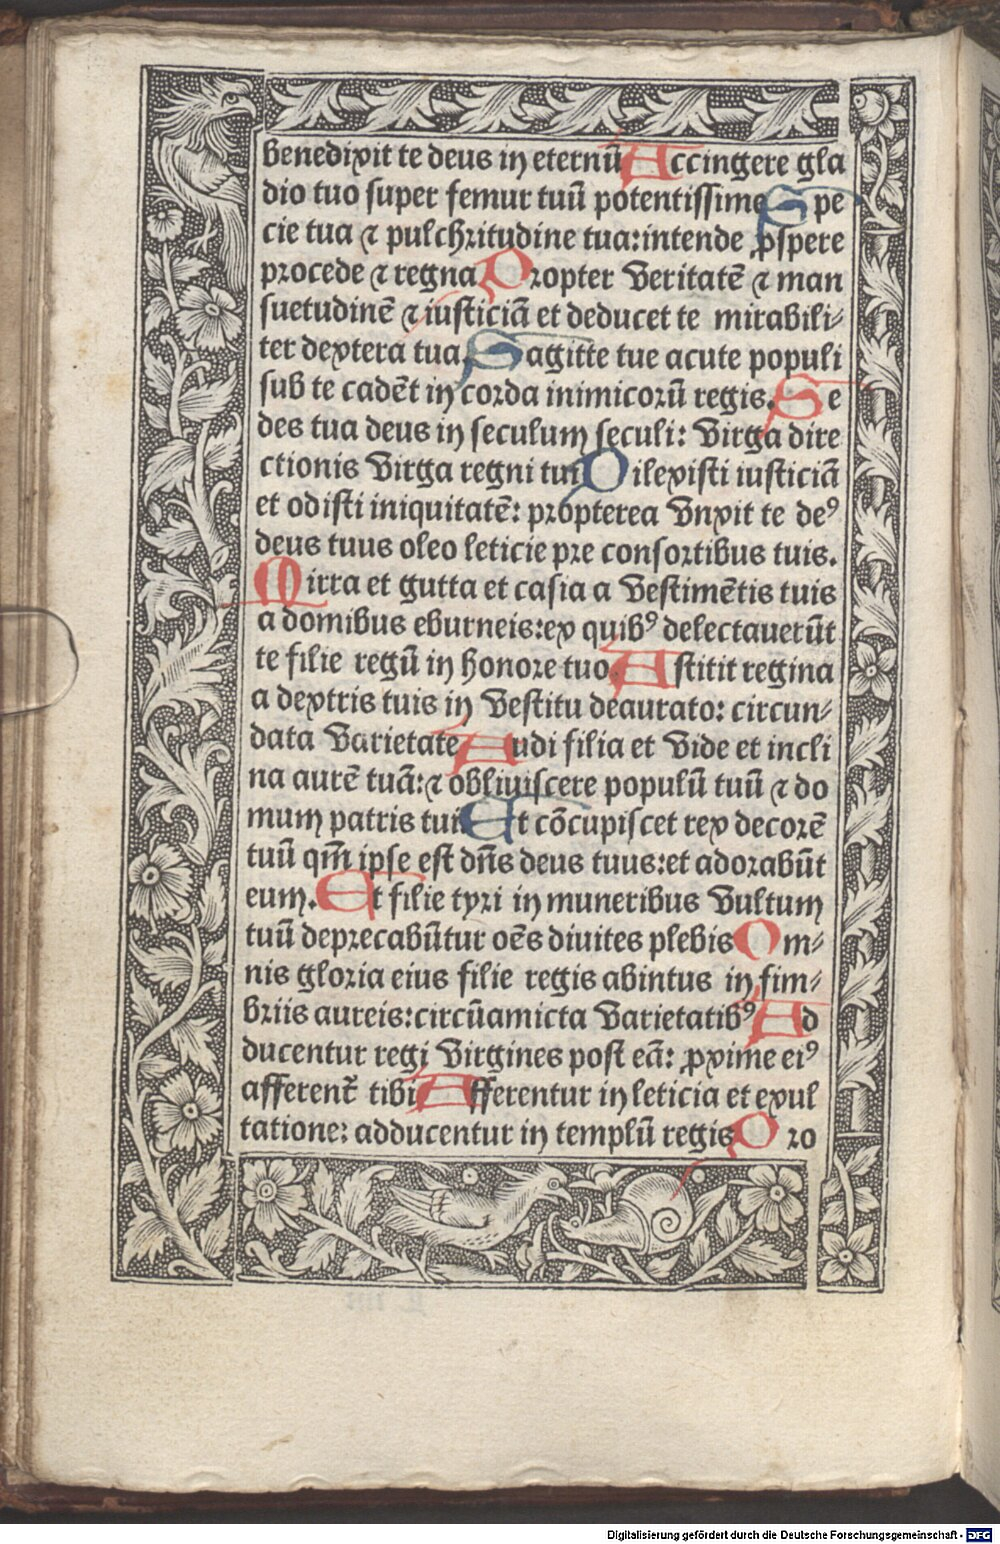 benedixit te deus in eternū Accingere gla
dio tuo super femur tuū potentissime Spe
cie tua ⁊ pulchritudine tua: intende ꝓspere
procede ⁊ regna Propter veritatē ⁊ man
suetudinē ⁊ iusticiā et deducet te mirabili⸗
ter dextera tua. Sagitte tue acute populi
sub te cadēt in corda inimicorū regis. Se
des tua deus in seculum seculi: virga dire
ctionis virga regni tui Dilexisti iusticiā
et odisti iniquitatē: propterea vnxit te deꝰ
deus tuus oleo leticie pre consortibus tuis.
Mirra et gutta et casia a vestimētis tuis
a domibus eburneis: ex quibꝰ delectauerūt
te filie regū in honore tuo. Astitit regina
a dextris tuis in vestitu deaurato: circun⸗
data varietate Audi filia et vide et incli
na aurē tuā: ⁊ obliuiscere populū tuū ⁊ do
mum patris tui Et cōcupiscet rex decorē
tuū qm̄ ipse est dn̄s deus tuus: et adorabūt
eum. Et filie tyri in muneribus vultum
tuū deprecabūtur oēs diuites plebis Om⸗
nis gloria eius filie regis abintus in fim⸗
briis aureis: circūamicta varietatibꝰ Ad
ducentur regi virgines post eā: ꝓxime eiꝰ
afferent᷑ tibi Afferentur in leticia et exul
tatione: adducentur in templū regis Pro
Digitalisierung gefördert durch die Deutsche Forschungsgemeinschaft - DFG